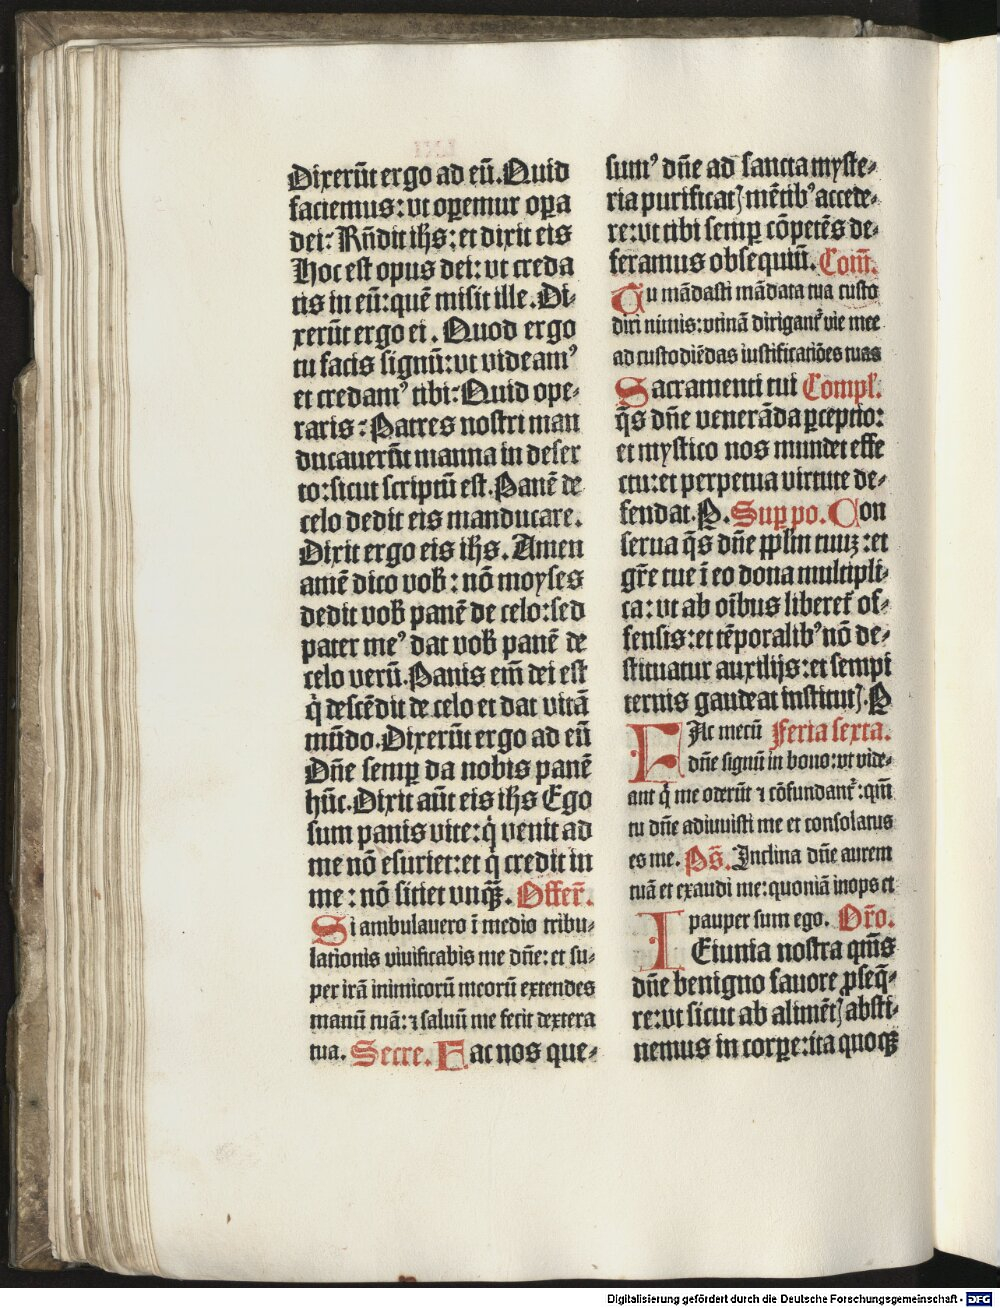 Dixerūt ergo ad eū. Quid
faciemus: vt operemur opera
dei: Rūdit ihs: et dixit eis
Hoc est opus dei: vt creda
tis in eū: quē misit ille. Di-
xerūt ergo ei. Quod ergo
tu facis signū: vt videamꝰ
et credamꝰ tibi: Quid ope-
raris: Patres nostri man
ducauerūt manna in deser
to: sicut scriptū est. Panē de
celo dedit eis manducare.
Dixit ergo eis ihs. Amen
amē dico vob̄: nō moyses
dedit vob̄ panē de celo: sed
pater meꝰ dat vob̄ panē de
celo verū. Panis em̄ dei est
q̇ descēdit de celo et dat vitā
mūdo. Dixerūt ergo ad eū
Dn̄e semꝑ da nobis panē
hūc. Dixit aūt eis ihs Ego
sum panis vite: q̇ venit ad
me nō esuriet: et q̇ credit in
me: nō sitiet vnqꝫ. Offer̄.
Si ambulauero ī medio tribu-
lationis viuificabis me dn̄e: et su-
per irā inimicorū meorū extendes
manū tuā: ⁊ saluū me fecit dextera
tua. Secre. Hac nos que-
sumꝰ dn̄e ad sancta myste-
ria purificatꝭ mētibꝰ accede-
re: vt tibi semꝑ cōpetēs de-
feramus obsequiū. Com̄.
Tu mādasti mādata tua custo
diri nimis: vtinā dirigant᷑ vie mee
ad custodiēdas iustificatiōes tuas
Sacramenti tui Compl̄.
q̄s dn̄e venerāda ꝑceptio:
et mystico nos mundet effe
ctu: et perpetua virtute de-
fendat. P. Suꝑ po. Con
serua q̄s dn̄e pplm̄ tuuꝫ: et
gr̄e tue ī eo dona multipli-
ca: vt ab oībus liberet᷑ of-
fensis: et tēporalibꝰ nō de-
stituatur auxilijs: et sempi
ternis gaudeat institutꝭ. P
FAc mecū Feria sexta.
dn̄e signū in bono: vt vide-
ant q̇ me oderūt ⁊ cōfundant᷑: qm̄
tu dn̄e adiuuisti me et consolatus
es me. Ps̄. Inclina dn̄e aurem
tuā et exaudi me: quoniā inops et
pauper sum ego. Or̄o.
IEiunia nostra qm̄s
dn̄e benigno fauore ꝓseq̄-
re: vt sicut ab alimētꝭ absti-
nemus in corꝑe: ita quoqꝫ
Digitalisierung gefördert durch die Deutsche Forschungsgemeinschaft - DFG